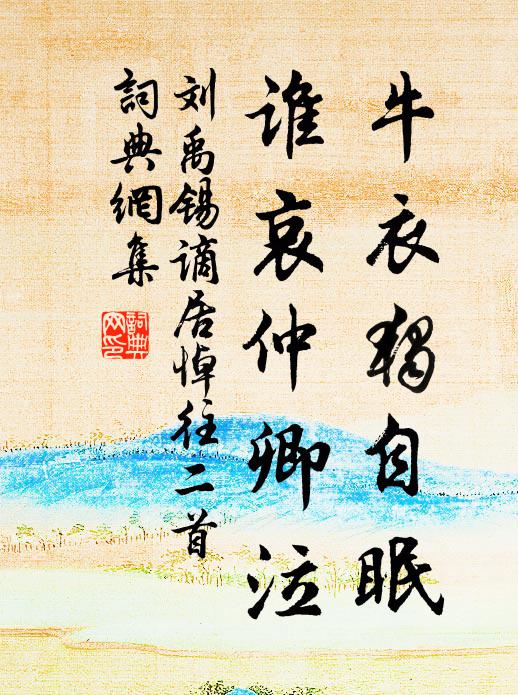 牛衣独自眠
谁哀仲卿泣
刘禹锡谪居悼往二首
詞典網集
詞典
网印